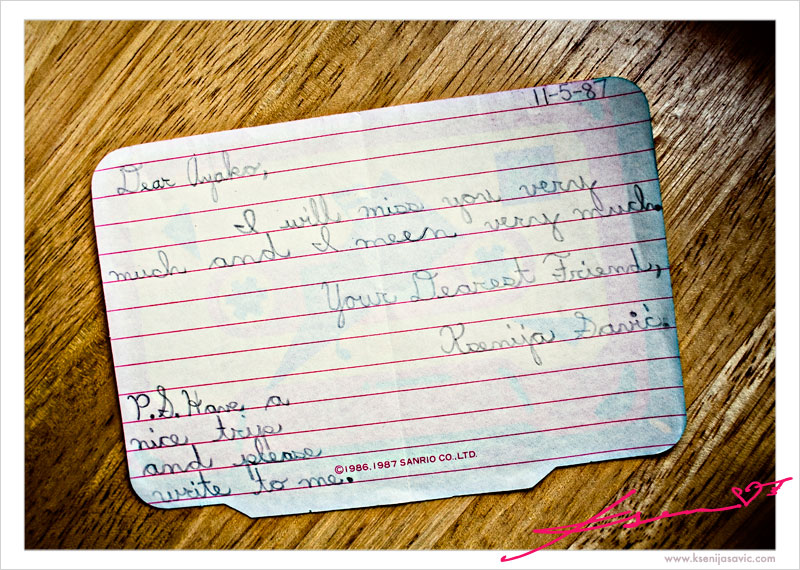 11-5-87
Dear Ayako,
I will miss you very
much and I meen very much.
Your Dearest Friend,
Ksenija Savić.
P.S. Have a
nice trye
and please
write to me.
©1986,1987 SANRIO CO.,LTD.
www.ksenijasavic.com